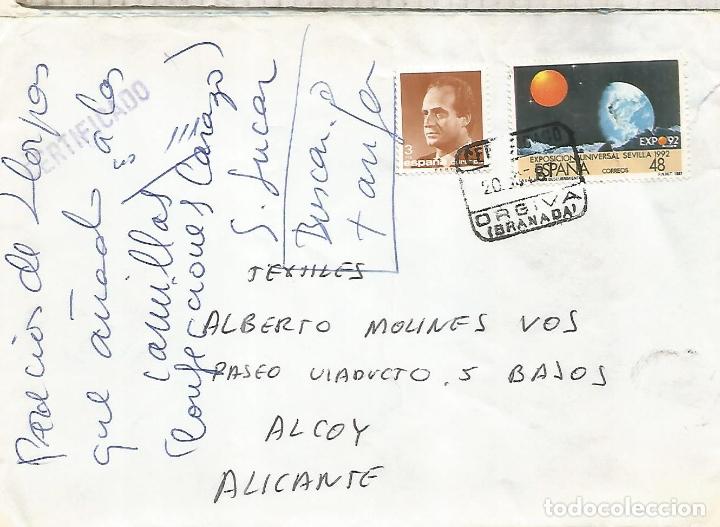 Precios de
que añado a las
camillas
(confecciones Carazo)
S. Lucar
Buscar
CERTIFICADO
3
españa
CORREOS
EXPO'92
EXPOSICION UNIVERSAL SEVILLA 1992
ESPAÑA
CORREOS
48
20
ORGIVA
(GRANADA)
TEXTILES
ALBERTO MOLINES VOS
PASEO VIADUCTO. 5 BAJOS
ALCOY
ALICANTE
todocoleccion